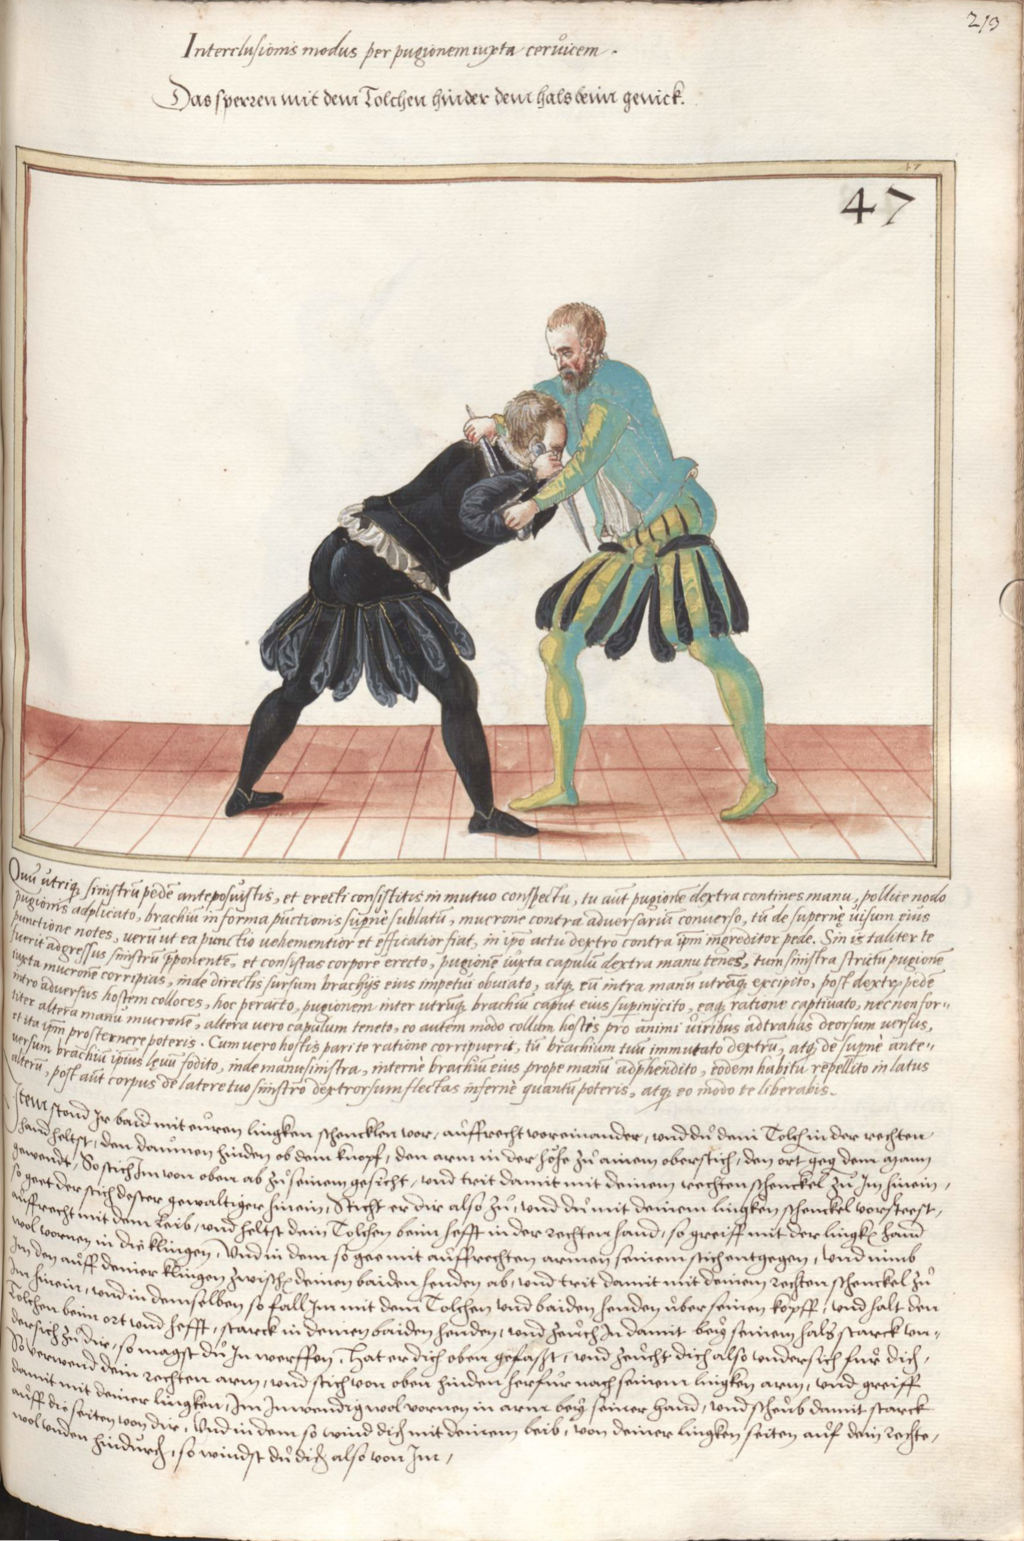 213
Interclusionis modus per pugionem iuxta ceruicem.
Das sperren mit dem Tolchen hinder dem hals beim genick.
47
47
Quũ utriq, sinistrũ pedẽ anteposuistis, et erecti consistitis in mutuo conspectu, tu aũt pugionẽ dextra contines manu, pollice nodo
pugionis adplicato, brachiũ in forma pũctionis supernè sublatũ, mucrone contra aduersariũ conuerso, tũ de supernè uisum eius
punctione notes, uerũ ut ea punctio uehementior et efficatior fiat, in ipo actu dextro contra ipm ingreditor pede. Sin is taliter te
fuerit adgressus sinistrũ pponentẽ, et consistas corpore erecto, pugionẽ iuxta capulũ dextra manu tenes, tum sinistra strictu pugionẽ
iuxta mucronẽ corripias, inde directis sursum brachys eius impetui obuiato, atq, eũ intra manũ utrãq, excipito, post dextrũ pedẽ
intro aduersus hostem colloces, hoc peracto, pugionem inter utrũq, brachiũ caput eius supinycito, eaq, ratione captiuato, nec non for-
titer altera manu mucronẽ, altera uero capulum teneto, eo autem modo collum hostis pro animi uiribus adtrahas deorsum uersus,
et ita ipm prosternere poteris. Cum uero hostis pari te ratione corripuerit, tũ brachium tuũ immutato dextrũ, atq, de supnè ante-
uersum brachiũ ipsius leuũ fodito, inde manu sinistra, internè brachiũ eius prope manũ adphendito, eodem habitu repellito in latus
alterũ, post aũt corpus de latere tuo sinistro dextrorsum flectas infernè quantũ poteris, atq, eo modo te liberabis.
Item stond Ir baid mit euren lingken schencklen vor, auffrecht vor einander, vnd du dein Tolch in der rechten
hand heltst, den daumen hinden ob dem knopf, den arm in der höhe zu ainem oberstich, den ort geg dem mann
gewendt, So stich Im von oben ab zu seinem gesicht, vnd trit damit mit deinem rechten schenckel zu Im hinein,
so geet der stich dester gewaltiger hinein, Sticht er dir also zu, vnd du mit deinem lingken schenckel vorsteest,
auffrecht mit dem Leib, vnd heltst dein Tolchen beim hefft in der rechten hand, so greiff mit der lingkẽ hand
wol vornen in die klingen, Vnd in dem so gee mit auffrechten armen seinem stich entgegen, vnd nimb
Im den auff deiner klingen zwischẽ deinen baiden henden ab, vnd trit damit mit deinem rechten schenckel zu
Im hinein, vnd in demselben so fall Im mit dem Tolchen vnd baiden henden über seinen kopff, vnd halt den
Tolchen beim ort vnd hefft, starck in deinen baiden henden, vnd zeuch In damit bey seinem hals starck vn-
dersich zu dir, so magst du In werffen, Hat er dich oben gefasst, vnd zeucht dich also vndersich fur dich,
So verwend dein rechten arm, vnd stich von oben hinden herfur nach seinem lingken arm, vnd greiff
damit mit deiner lingken, Im Inwendig wol vornen in arm bey seiner hand, vnd scheub damit starck
auff die seiten von dir, Vnd in dem so wind dich mit deinem leib, von deiner lingken seiten auf dein rechte,
wol vnden hindurch, so windst du dich also von Im,